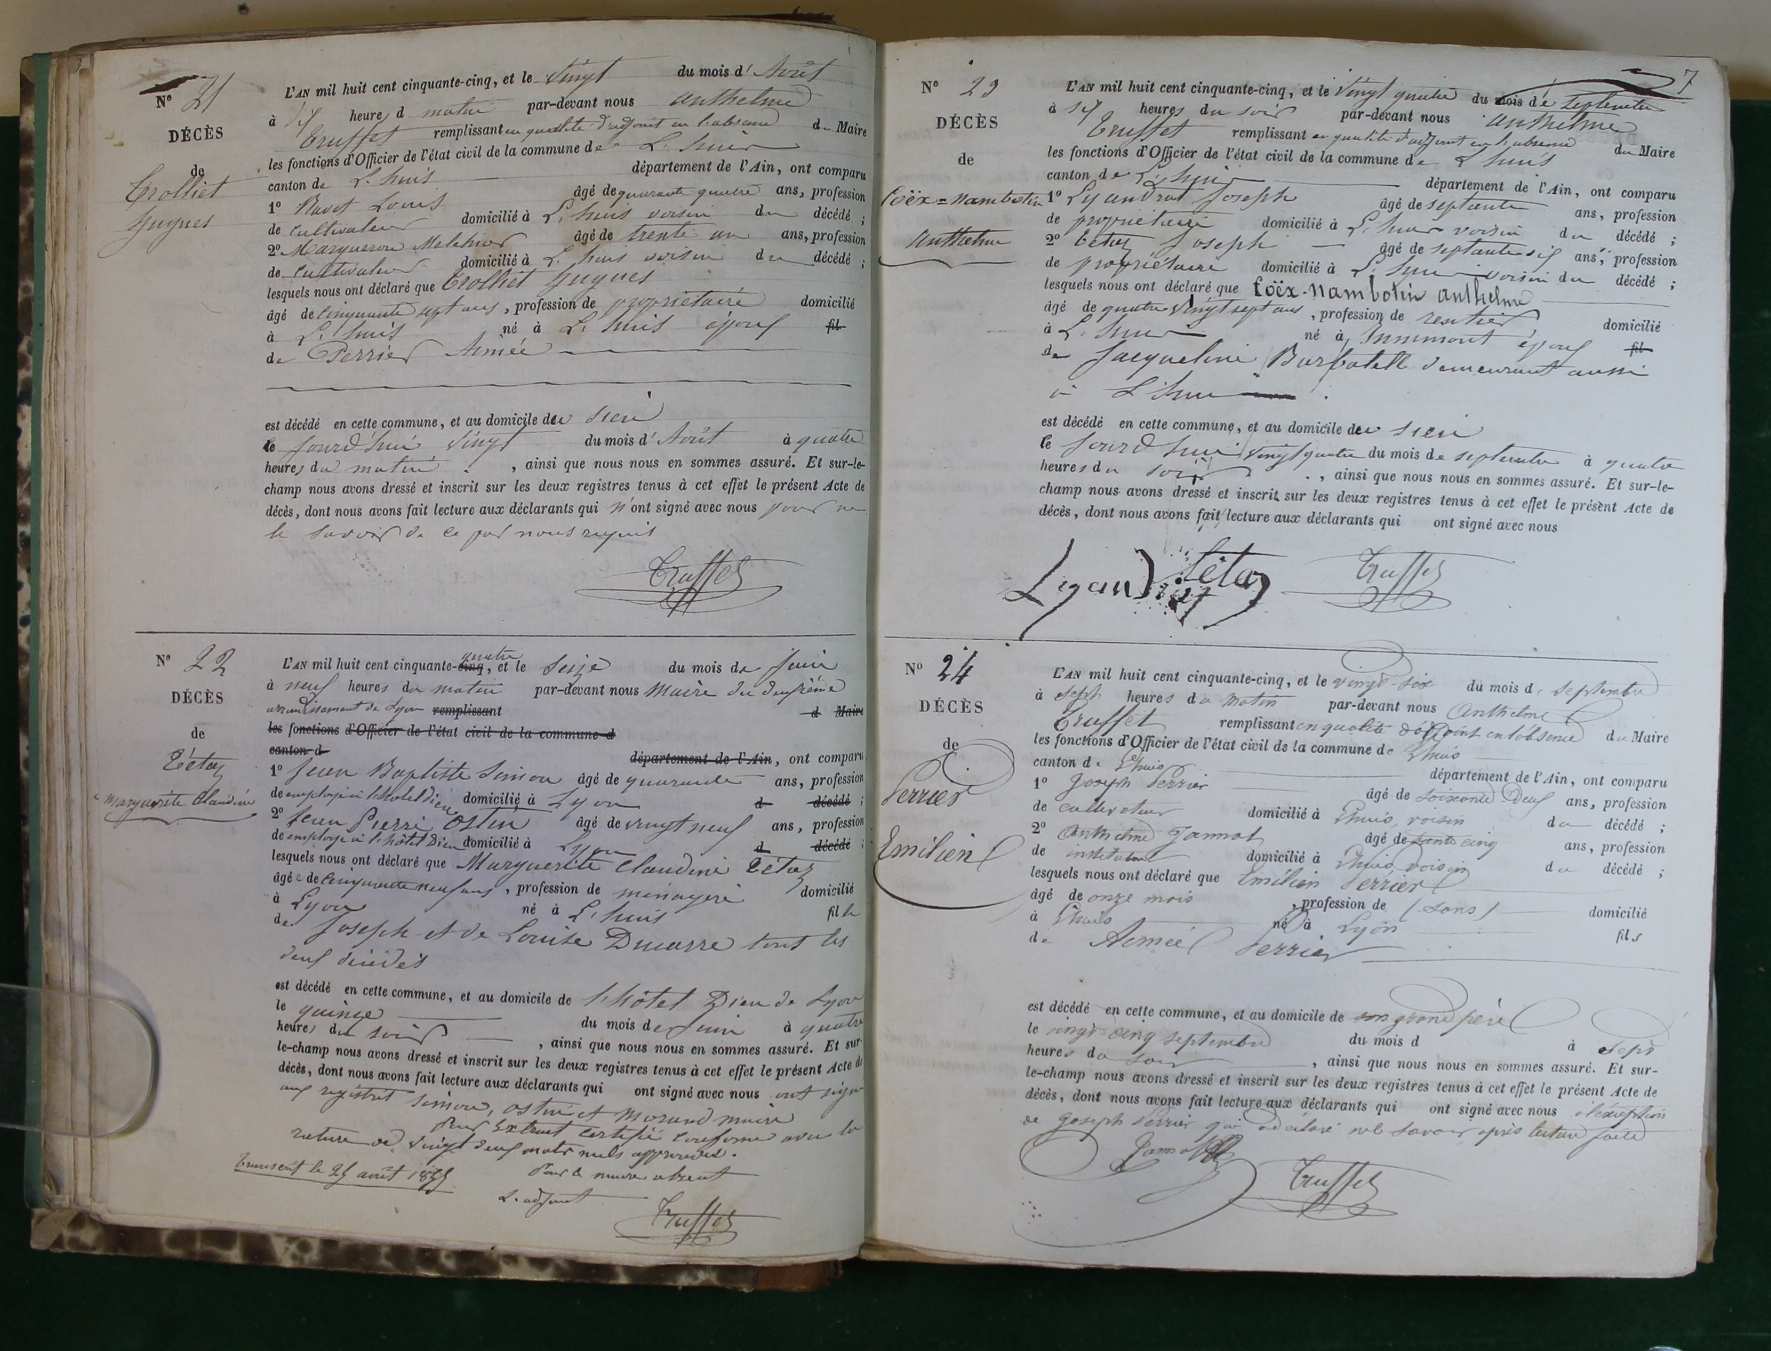 N° 21
DÉCÈS
de
Trolliet
Hugues
L'AN mil huit cent cinquante-cinq, et le vingt du mois d'Août
à dix heures d matin par-devant nous anthelme
Truffet remplissant en qualité d'adjoint en l'absence du Maire
les fonctions d'Officier de l'état civil de la commune de L'huis
canton de L'huis département de l'Ain, ont comparu
1° Louis âgé de quarante quatre ans, profession
de cultivateur domicilié à L'huis voisin du décédé ;
2° Melchior âgé de trente un ans, profession
de cultivateur domicilié à L'huis voisin du décédé ;
lesquels nous ont déclaré que Trolliet hugues
âgé de cinquante sept ans, profession de propriétaire domicilié
à L'huis né à L'huis époux fil
de Perrier Aimée
est décédé en cette commune, et au domicile de sien
le jourd'hui vingt du mois d'Août à quatre
heures du matin, ainsi que nous nous en sommes assuré. Et sur-le-
champ nous avons dressé et inscrit sur les deux registres tenus à cet effet le présent Acte de
décès, dont nous avons fait lecture aux déclarants qui n'ont signé avec nous pour ne
le savoir de ce par nous requis
Truffet
N° 22
DÉCÈS
de
Tétaz
Marguerite Claudine
L'AN mil huit cent cinquante-cinq quatre, et le seize du mois de juin
à neuf heures du matin par-devant nous maire du deuxième
arrondissement de Lyon remplissant d Maire
les fonctions d'Officier de l'état civil de la commune d
canton d département de l'Ain, ont comparu
1° Jean Baptiste Simon âgé de quarante ans, profession
de employé à l'hôtel Dieu domicilié à Lyon d décédé ;
2° Jean Pierre Ostin âgé de vingt neuf ans, profession
de employé à l'hôtel Dieu domicilié à Lyon d décédé ;
lesquels nous ont déclaré que Marguerite Claudine Tétaz
âgée de cinquante neuf ans, profession de ménagère domicilié
à Lyon né à L'huis fille
de Joseph et de Louise Ducarre tout les
deux décédés
est décédé en cette commune, et au domicile de l'hôtel Dieu de Lyon
le quinze du mois de juin à quatre
heures du soir, ainsi que nous nous en sommes assuré. Et sur-
le-champ nous avons dressé et inscrit sur les deux registres tenus à cet effet le présent Acte de
décès, dont nous avons fait lecture aux déclarants qui ont signé avec nous ont signé
aux registres Simon, Ostin et Morand maire
Pour Extrait certifié conforme avec la
rature de vingt deux mots nuls approuvés.
Transcrit le 25 août 1855 Pour le maire absent
L'adjoint
Truffet
7
N° 23
DÉCÈS
de
Coëx=nambotin
Anthelme
L'AN mil huit cent cinquante-cinq, et le vingt quatre du mois de septembre
à six heures du soir par-devant nous anthelme
Truffet remplissant en qualité d'adjoint en l'absence du Maire
les fonctions d'Officier de l'état civil de la commune de L'huis
canton de L'huis département de l'Ain, ont comparu
1° Lyandrat Joseph âgé de septante ans, profession
de propriétaire domicilié à L'huis voisin du décédé ;
2° Tétaz Joseph âgé de septante six ans, profession
de propriétaire domicilié à L'huis voisin du décédé ;
lesquels nous ont déclaré que Coëx-nambotin anthelme
âgé de quatre vingt sept ans, profession de rentier domicilié
à L'huis né à Innimont époux fil
de Jacqueline demeurant aussi
à L'huis
est décédé en cette commune, et au domicile de sien
le jourd'hui vingt quatre du mois de septembre à quatre
heures du soir, ainsi que nous nous en sommes assuré. Et sur-le-
champ nous avons dressé et inscrit sur les deux registres tenus à cet effet le présent Acte de
décès, dont nous avons fait lecture aux déclarants qui ont signé avec nous
Lyandrat Tétaz Truffet
N° 24
DÉCÈS
de
Perrier
Emilien
L'AN mil huit cent cinquante-cinq, et le vingt-six du mois de septembre
à sept heures du matin par-devant nous Anthelme
Truffet remplissant en qualité d'adjoint en l'absence du Maire
les fonctions d'Officier de l'état civil de la commune de Lhuis
canton de Lhuis département de l'Ain, ont comparu
1° Joseph Perrier âgé de soixante deux ans, profession
de cultivateur domicilié à Lhuis, voisin du décédé ;
2° Anthelme Jannot âgé de trente cinq ans, profession
de instituteur domicilié à Lhuis, voisin du décédé ;
lesquels nous ont déclaré que Emilien Perrier
âgé de onze mois, profession de (sans) domicilié
à Lhuis né à Lyon fils
de Aimée Perrier
est décédé en cette commune, et au domicile de son grand père
le vingt-cinq septembre du mois d à sept
heures du soir, ainsi que nous nous en sommes assuré. Et sur-
le-champ nous avons dressé et inscrit sur les deux registres tenus à cet effet le présent Acte de
décès, dont nous avons fait lecture aux déclarants qui ont signé avec nous à l'exception
de Joseph Perrier qui a déclaré ne le savoir après lecture faite
Jannot Truffet